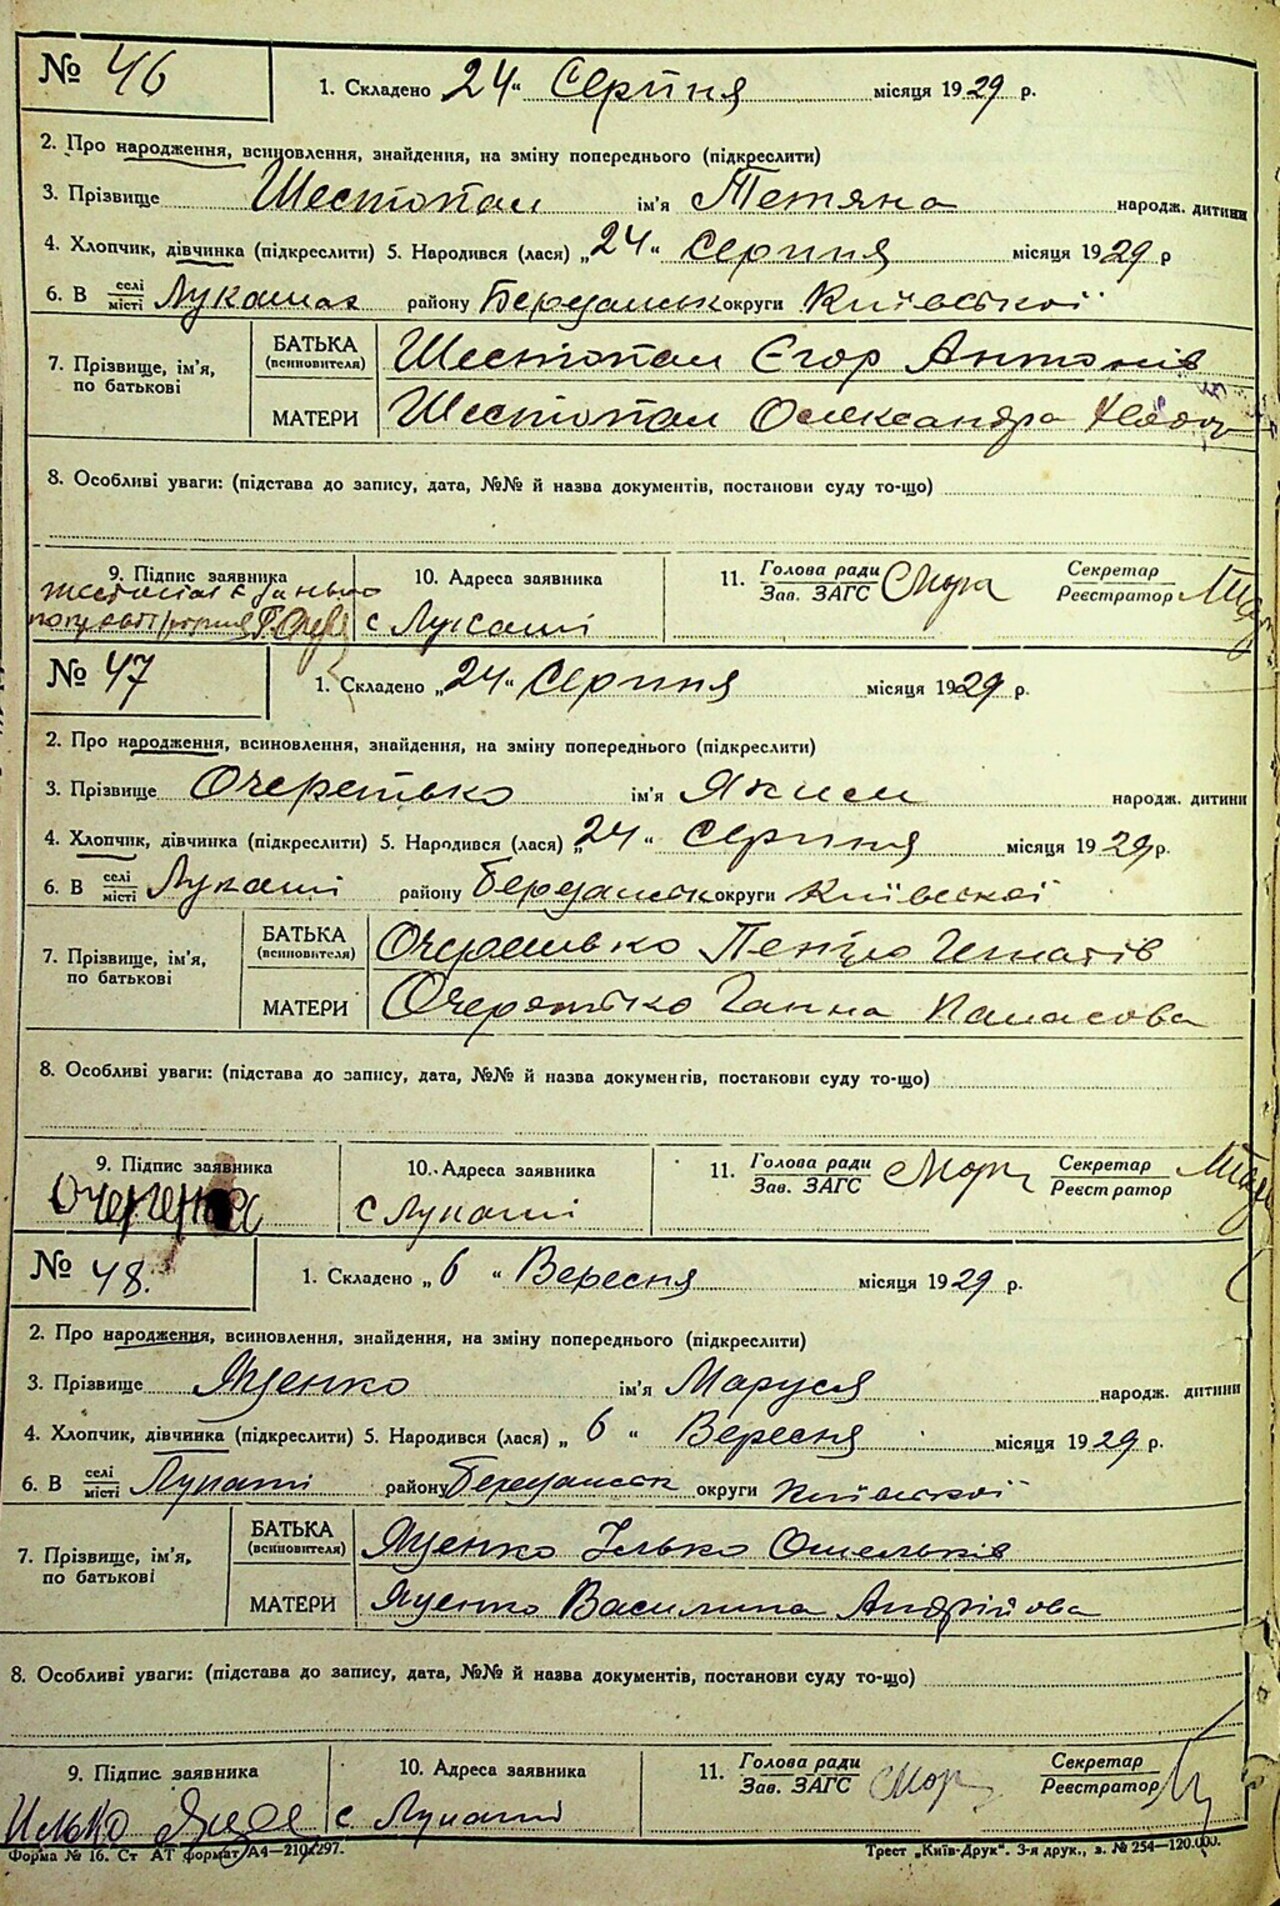 № 46
1. Складено 24 „ Серпня місяця 1929 р.
2. Про народження, всиновлення, знайдення, на зміну попереднього (підкреслити)
3. Прізвище Шестопал ім'я Тетяна народж. дитини
4. Хлопчик, дівчинка (підкреслити) 5. Народився (лася) „24“ Серпня місяця 1929 р
6. В селі/місті Лукашах району Береданськ округи Київської
7. Прізвище, ім'я, по батькові
БАТЬКА (всиновителя) Шестопал Єгор Антонів
МАТЕРИ Шестопал Олександра
8. Особливі уваги: (підстава до запису, дата, №№ й назва документів, постанови суду то-що)
9. Підпис заявника
10. Адреса заявника
с Лукаші
11. Голова ради/Зав. ЗАГС Секретар/Реєстратор
№ 47
1. Складено „24“ Серпня місяця 1929 р.
2. Про народження, всиновлення, знайдення, на зміну попереднього (підкреслити)
3. Прізвище Очеретько ім'я Яким народж. дитини
4. Хлопчик, дівчинка (підкреслити) 5. Народився (лася) „24“ Серпня місяця 1929 р.
6. В селі/місті Лукаші району Береданськ округи Київської
7. Прізвище, ім'я, по батькові
БАТЬКА (всиновителя) Гнатів
МАТЕРИ Очеретько Ганна Панасова
8. Особливі уваги: (підстава до запису, дата, №№ й назва документів, постанови суду то-що)
9. Підпис заявника
10. Адреса заявника
с Лукаші
11. Голова ради/Зав. ЗАГС Секретар/Реєстратор
№ 48.
1. Складено „6“ Вересня місяця 1929 р.
2. Про народження, всиновлення, знайдення, на зміну попереднього (підкреслити)
3. Прізвище Яценко ім'я Маруся народж. дитини
4. Хлопчик, дівчинка (підкреслити) 5. Народився (лася) „6“ Вересня місяця 1929 р.
6. В селі/місті Лукаші району Береданськ округи Київської
7. Прізвище, ім'я, по батькові
БАТЬКА (всиновителя) Яценко Ілько Омельків
МАТЕРИ Яценко Василина Андрійова
8. Особливі уваги: (підстава до запису, дата, №№ й назва документів, постанови суду то-що)
9. Підпис заявника
Илько
10. Адреса заявника
с. Лукаші
11. Голова ради/Зав. ЗАГС Секретар/Реєстратор
Форма № 16. Ст АТ формат А4—210х297.
Трест „Київ-Друк“. 3-я друк., з. № 254—120.000.